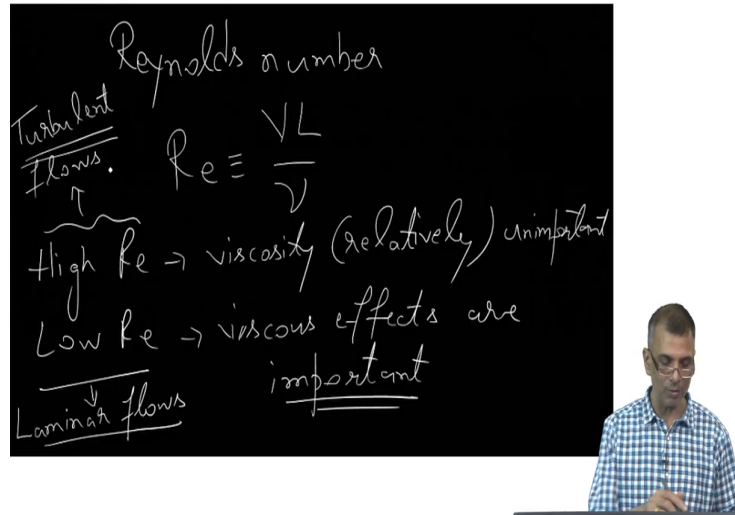 Reynolds number
Turbulent
flows.
Re ≡ VL
ν
High Re → viscosity (relatively) unimportant
Low Re → viscous effects are
important
Laminar flows